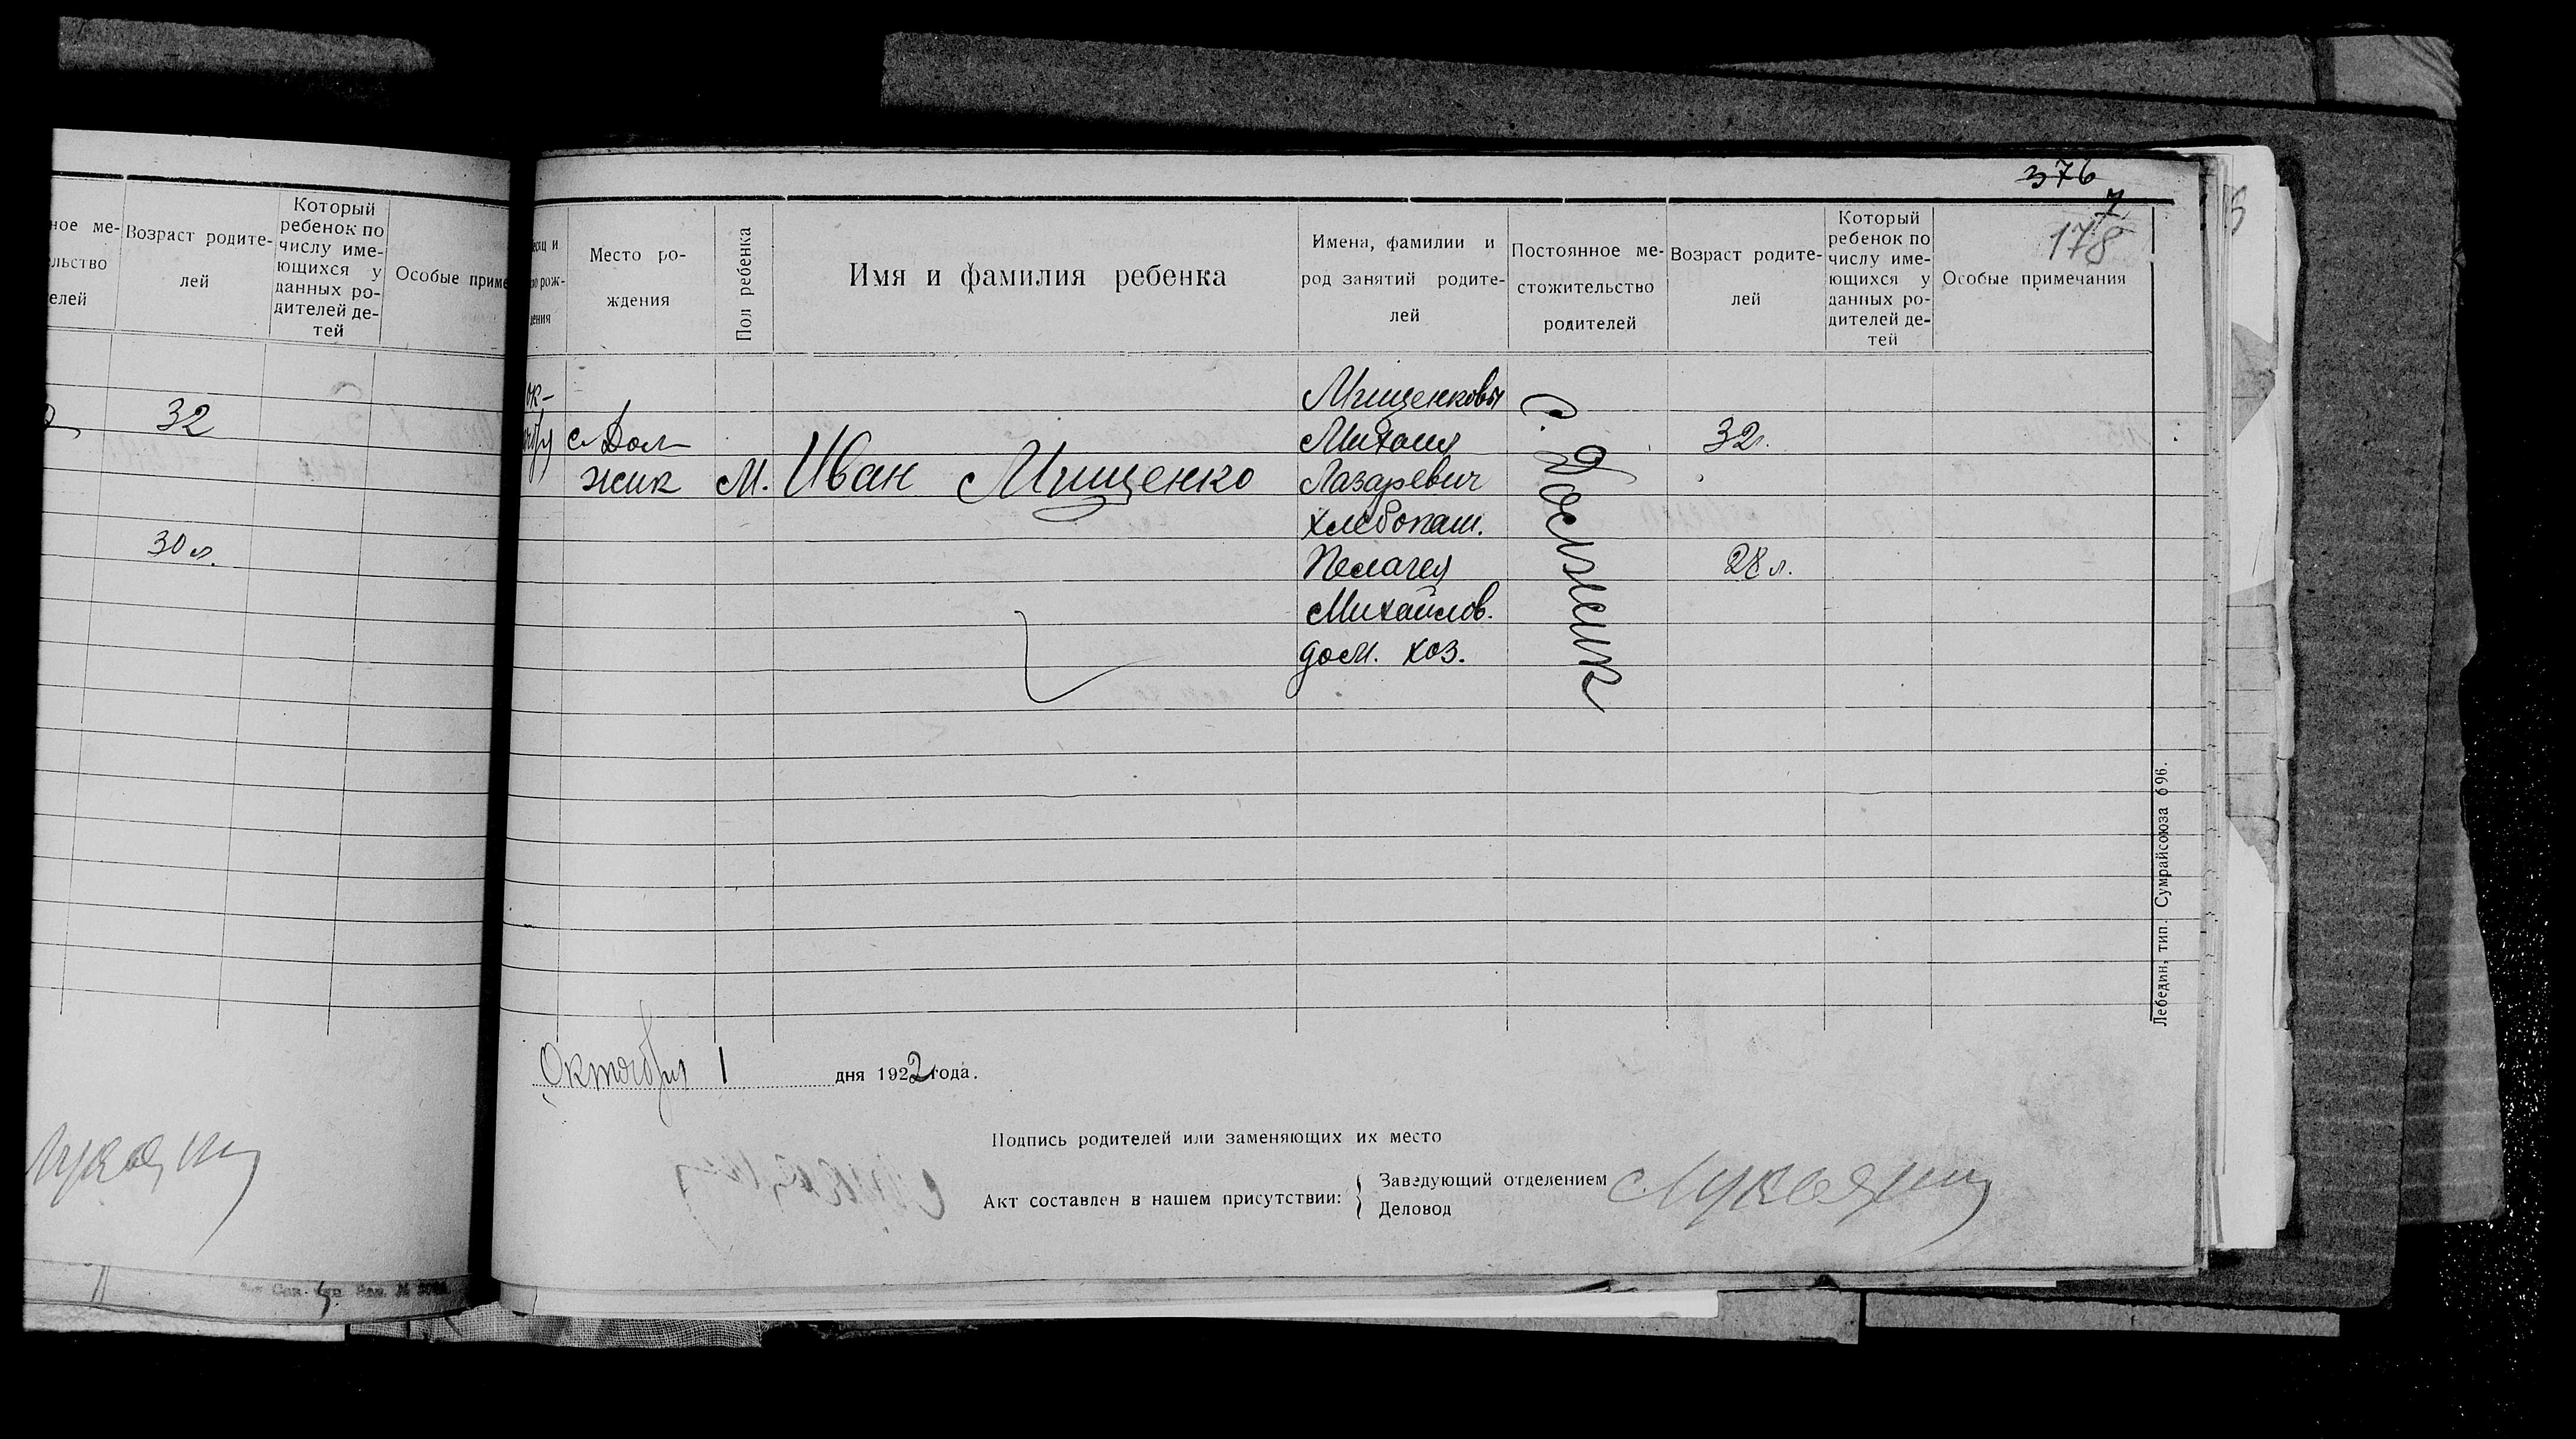 ное ме-
льство
елей
Возраст родите-
лей
Который
ребенок по
числу име-
ющихся у
данных ро-
дителей де-
тей
Особые приме
32
30 л.
376
7
178
есяц и
ло рож-
дения
Место ро-
ждения
Пол ребенка
Имя и фамилия ребенка
Имена, фамилии и
род занятий родите-
лей
Постоянное ме-
стожительство
родителей
Возраст родите-
лей
Который
ребенок по
числу име-
ющихся у
данных ро-
дителей де-
тей
Особые примечания
ок-
с Дол-
жик
М.
Иван Мищенко
Мищенковы
Михаил
Лазаревич
хлебопаш.
Пелагея
Михайлов.
дом. хоз.
с. Должик
32.
28 л.
Октября 1 дня 1922 года.
Подпись родителей или заменяющих их место
Акт составлен в нашем присутствии:
Заведующий отделением
Деловод
Лебедин, тип. Сумрайсоюза 696.